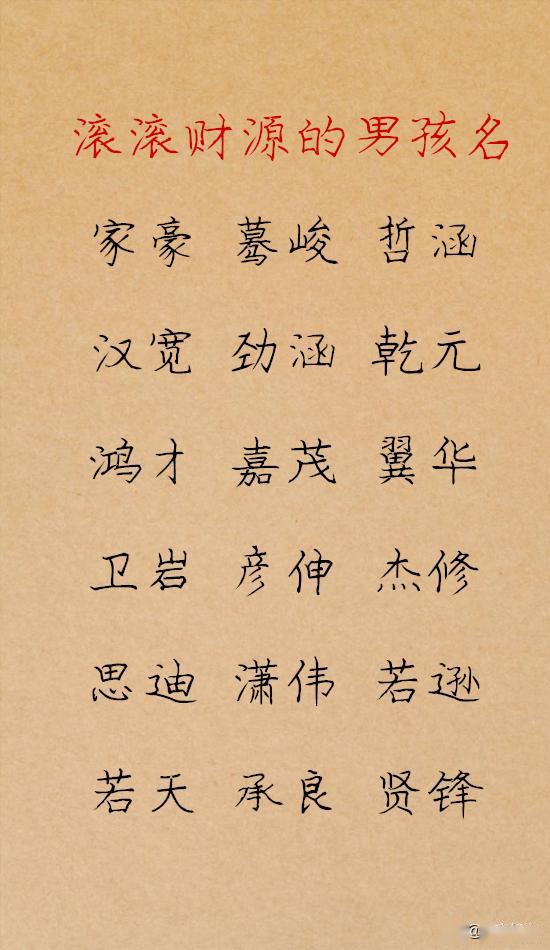 滚滚财源的男孩名
家豪 蓦峻 哲涵
汉宽 劲涵 乾元
鸿才 嘉茂 翼华
卫岩 彦伸 杰修
思迪 潇伟 若逊
若天 承良 贤锋
@